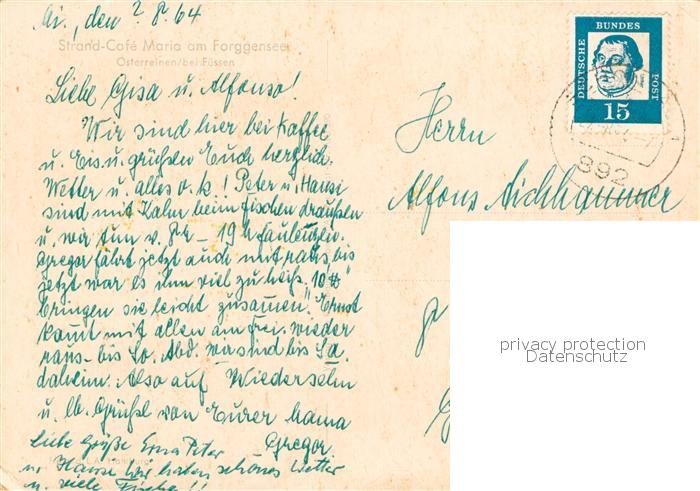 Mi., den 2.8.64
Strand-Café Maria am Forggensee
Osterreinen/bei Füssen
Liebe Gisa u. Alfonso!
Wir sind hier bei Kaffee
u. Eis u. grüßen Euch herzlich.
Wetter u. alles o.k.! Peter u. Hansi
sind mit Kahn beim fischen draußen
u. wir tun v. 8h – 19h faulenzen.
Gregor fährt jetzt auch mit raus bis
jetzt war es ihm viel zu heiß. 10 ℔
bringen sie leicht zusammen. Ernst
kommt mit allen am frei. wieder
raus - bis So. Abd. wir sind bis Sa.
daheim. Also auf Wiedersehn
u. lb. Grüßel von Eurer Mama
liebe Grüße Erna Peter Gregor
u. Hansi wir haben schönes Wetter
u. viele Fische!!
DEUTSCHE BUNDES POST
15
892
Herrn
Alfons Aichhammer
privacy protection
Datenschutz